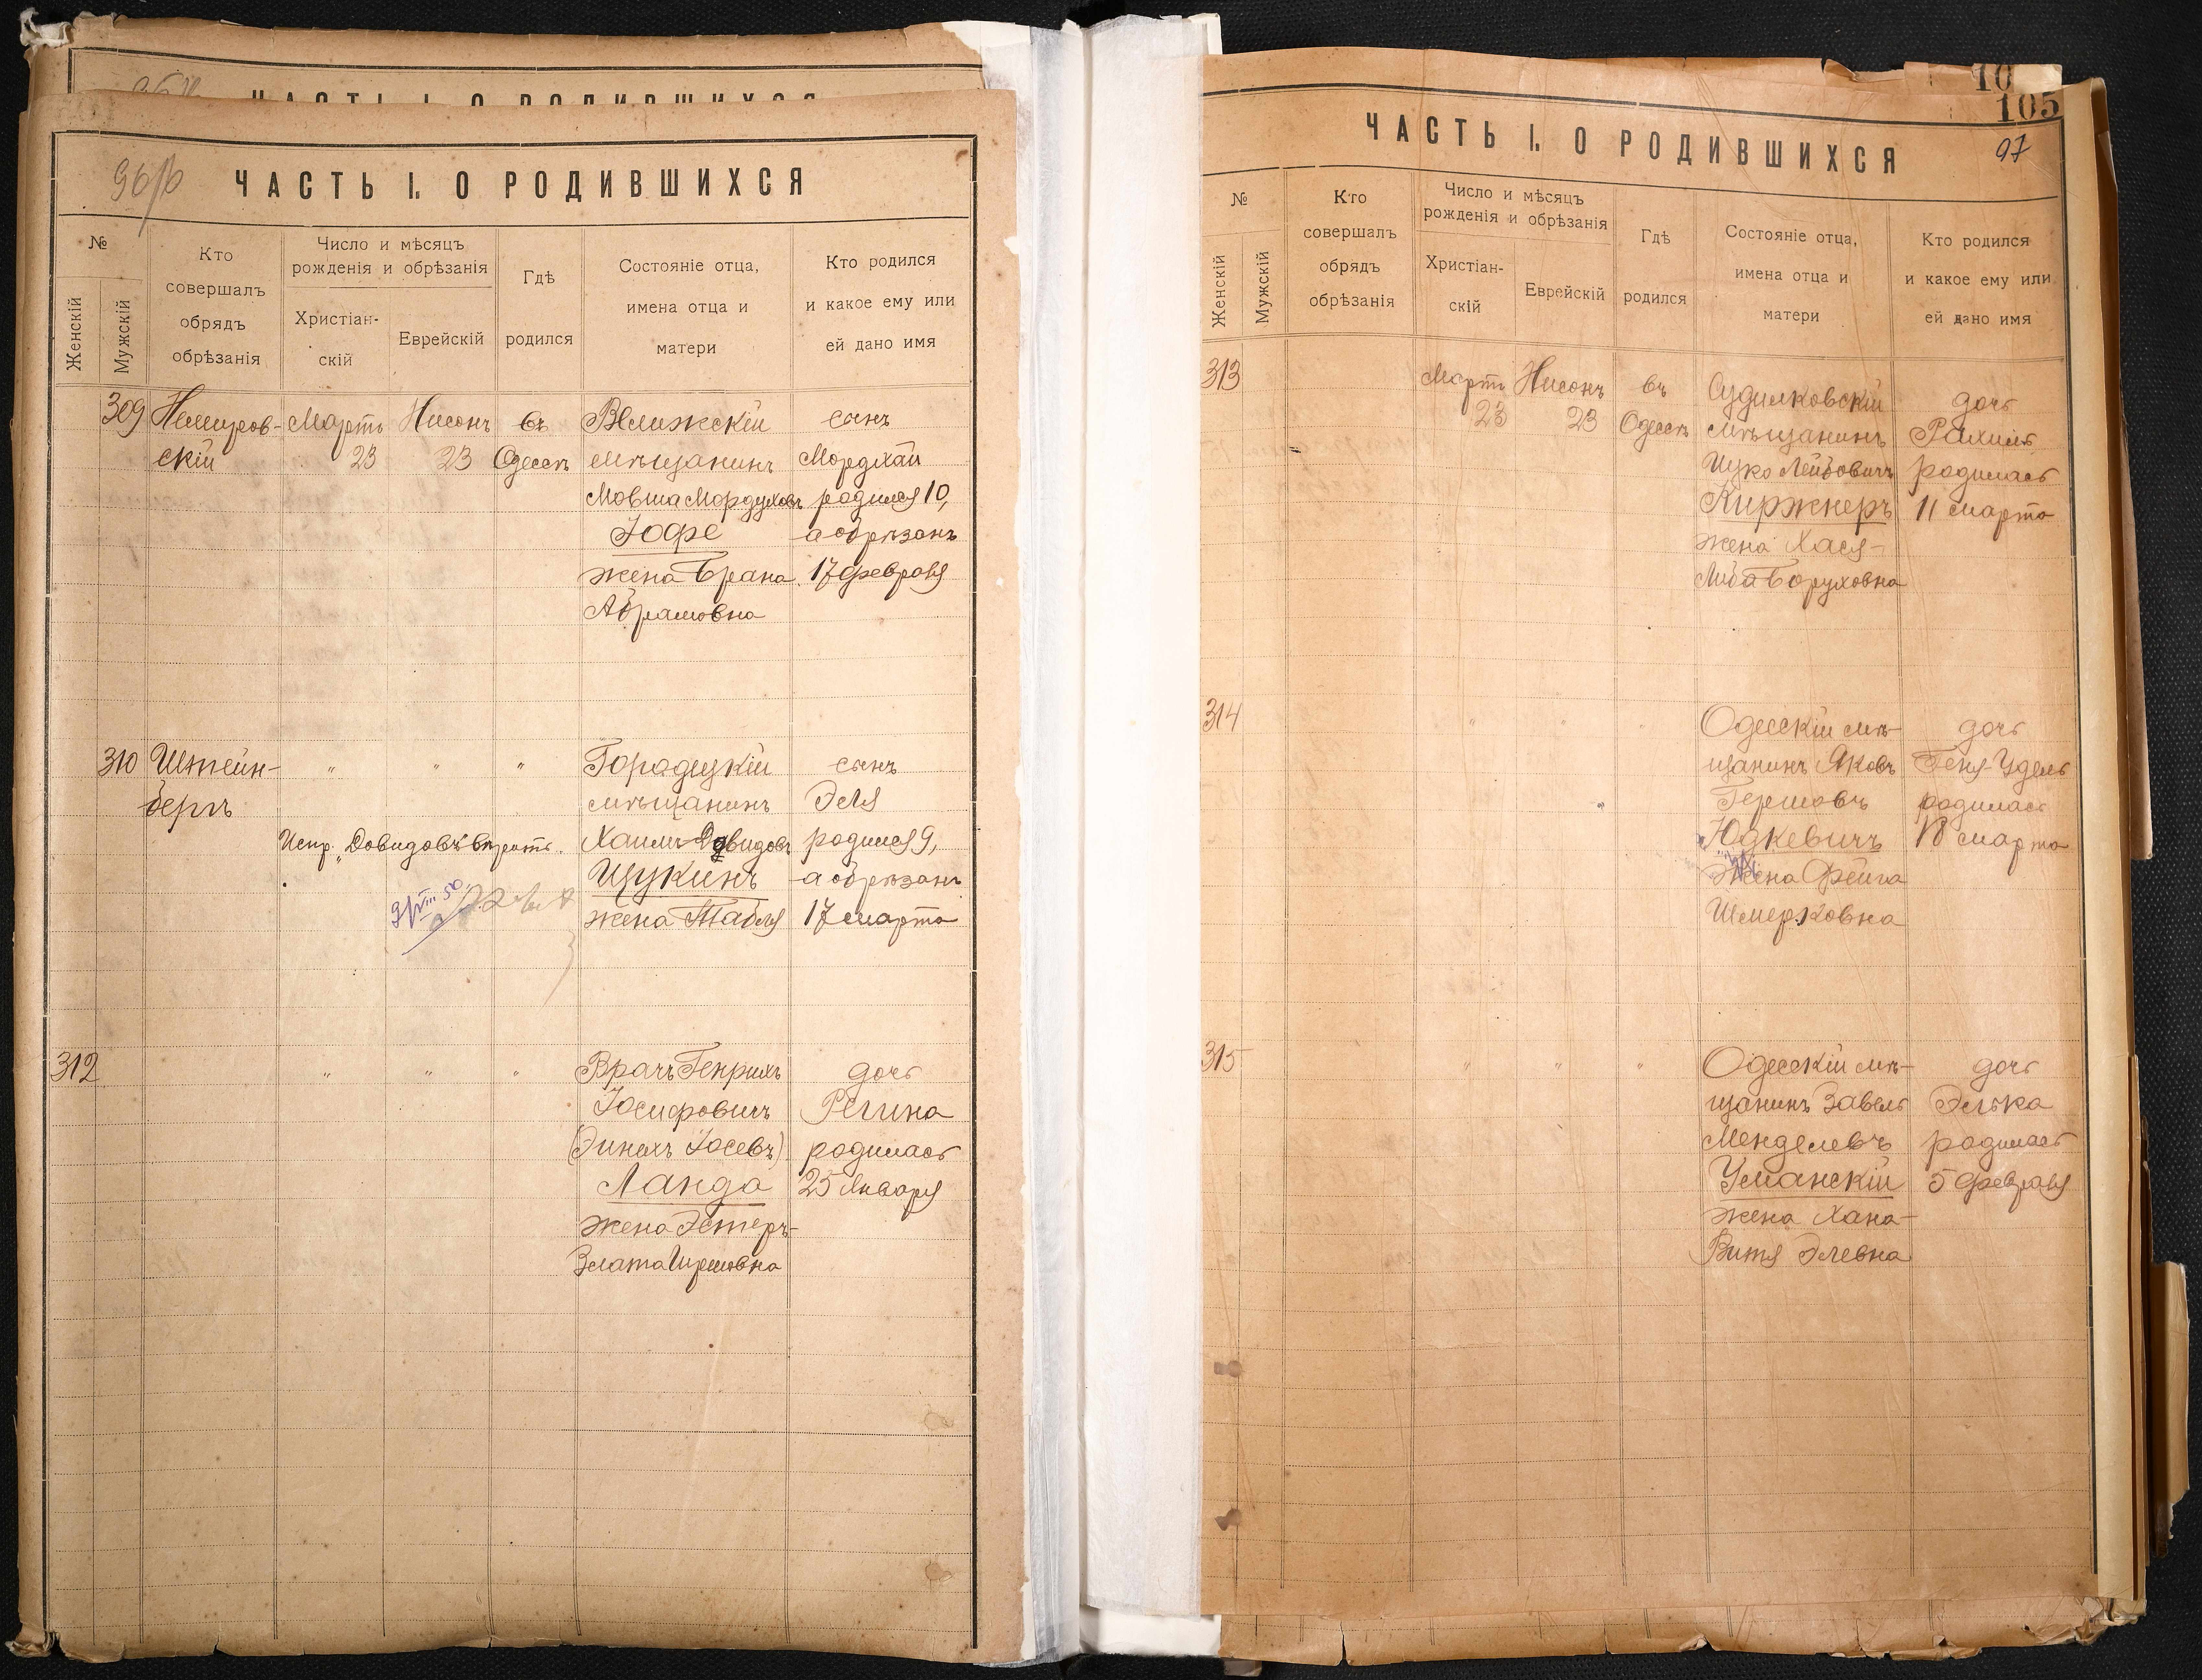 ЧАСТЬ I. О РОДИВШИХСЯ
96/б
ЧАСТЬ I. О РОДИВШИХСЯ
№
Женскій
Мужскій
Кто
совершалъ
обрядъ
обрѣзанія
Число и мѣсяцъ
рожденія и обрѣзанія
Христіан-
скій
Еврейскій
Гдѣ
родился
Состояніе отца,
имена отца и
матери
Кто родился
и какое ему или
ей дано имя
309 Немиров- Мартъ Нисонъ въ Велижскій сынъ
скій 23 23 Одессѣ мѣщанинъ Мордхай
Мовша Мордуховъ родился 10,
Іофе а обрѣзанъ
жена Брана 17 февраля
Абрамовна
310 Штейн- " " " Горадецкій сынъ
бергъ мѣщанинъ Эля
Испр. „Довидовъ" вѣрить. Хаимъ Довидовъ родился 9,
Щукинъ а обрѣзанъ
9/VIII 50
жена Табля 17 марта
312 " " " Врачъ Генрихъ дочь
Іосифовичъ Регина
(Энихъ Іосевъ) родилась
Ланда 25 Января
жена Эстеръ-
Злата Гиршовна
10
105
97
ЧАСТЬ I. О РОДИВШИХСЯ
№
Женскій
Мужскій
Кто
совершалъ
обрядъ
обрѣзанія
Число и мѣсяцъ
рожденія и обрѣзанія
Христіан-
скій
Еврейскій
Гдѣ
родился
Состояніе отца,
имена отца и
матери
Кто родился
и какое ему или
ей дано имя
313 Мартъ Нисонъ въ Судилковскій дочь
23 23 Одессѣ мѣщанинъ Рахиль
Ицко Лейбовичъ родилась
Киржнеръ 11 марта
жена Хася-
Либа Боруховна
314 " " " Одесскій мѣ- дочь
щанинъ Яковъ Геня-Удель
Гершовъ родилась
Юдкевичъ 18 марта
жена Фейга
Шмерковна
315 " " " Одесскій мѣ- дочь
щанинъ Завель Элька
Менделевъ родилась
Уманскій 5 февраля
жена Хана-
Витя Элевна